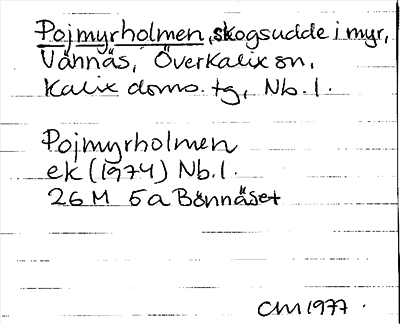 Pojmyrholmen, skogsudde i myr,
Vännäs, Överkalix sn,
Kalix doms. tg, Nb. l.
Pojmyrholmen
ek (1974) Nb. l.
26 M 5a Bönnäset
CM 1977.